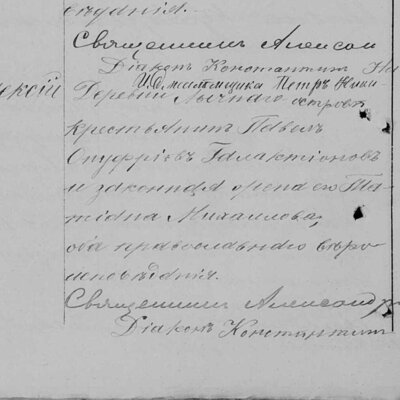 вѣданія.
Священникъ Алексан
Діаконъ Константинъ
И. д. псаломщика Петръ
ексій Деревни Лычнаго острова
крестьянинъ Павелъ
Онуфріевъ Галактіоновъ
и законная жена его Та-
тіана Михаилова,
оба православнаго вѣро-
исповѣданія.
Священникъ Александръ
Діаконъ Константинъ